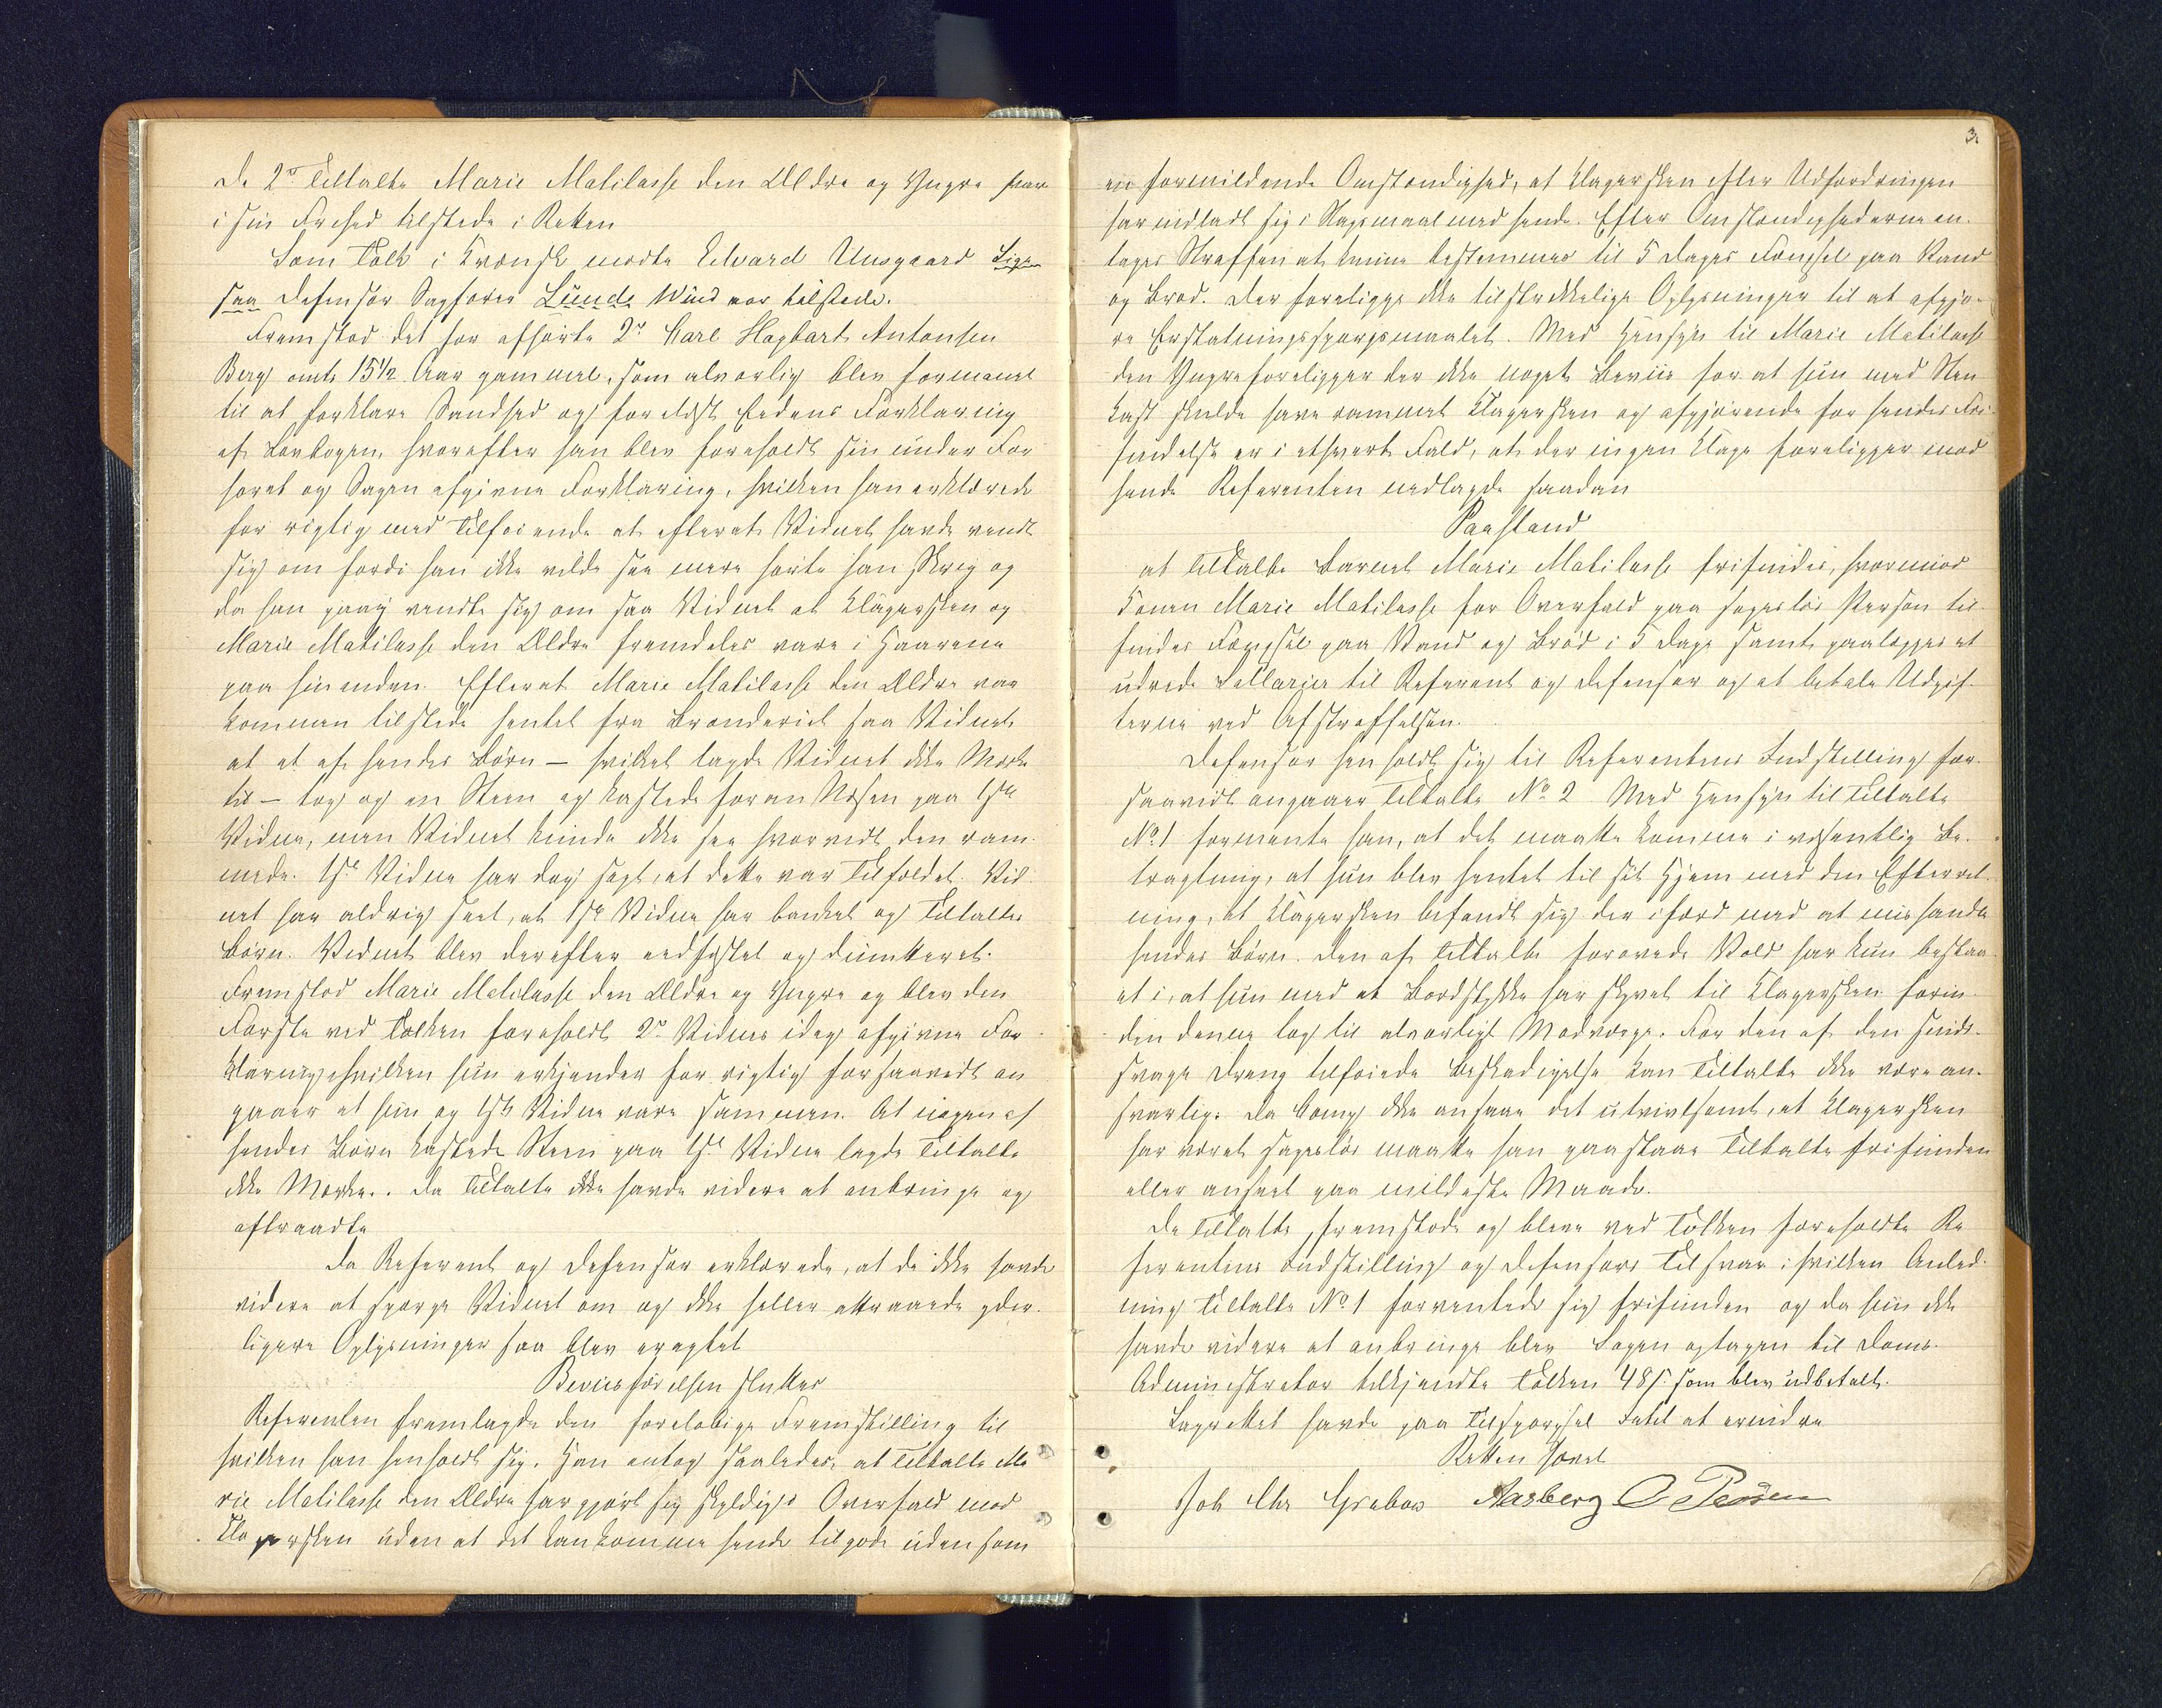 De 2de Tiltalte Marie Matilasse den Ældre og Yngre svare
i sin Frihed tilstede i Retten
Som Tolk i Kvænsk mødte Edvard Unsgaard Lige
saa Defensor Sagfører Lunde Wind var tilstede.
Fremstod det før afhørte 2det Carl Hagbart Antonsen
Berg omtr 15 1/2 Aar gammel, som alvorlig blev formanet
til at forklare Sandhed og forelæst Eedens Forklaring
af Lovbogen, hvorefter han blev foreholdt sin under For
høret og Sagen afgivne Forklaring, hvilken han erklærede
for rigtig med Tilføiende at efterat Vidnet havde vendt
sig om fordi han ikke vilde see mere hørte han Skrig og
da han paany vendte sig om saa Vidnet at Klagersken og
Marie Matilasse den Ældre fremdeles vare i Haarene
paa hinanden. Efterat Marie Matilasse den Ældre var
kommen tilstede hentet fra Brænderiet saa Vidnet
at et af hendes Børn – hvilket lagde Vidnet ikke Mærke
til – tog op en Steen og kastede foran Næsen paa 1ste
Vidne, men Vidnet kunde ikke see hvorvidt den ram-
mede. 1ste Vidne har dog sagt, at dette var Tilfældet. Vid
net har aldrig seet, at 1ste Vidne har banket op Tiltaltes
Børn. Vidnet blev derefter eedfæstet og dimitteret.
Fremstod Marie Matilasse den Ældre og Yngre og blev den
Første ved Tolken foreholdt 2det Vidnes idag afgivne For-
klaring hvilken hun erkjender for rigtig forsaavidt an
gaaer at hun og 1ste Vidne vare sammen. At nogen af
hendes Børn kastede Steen paa 1ste Vidne lagde Tiltalte
ikke Mærke. Da Tiltalte ikke havde videre at anbringe og
aftraadte
Da Referent og Defensor erklærede, at de ikke havde
videre at spørge Vidnet om og ikke heller attraaede yder-
ligere Oplysninger saa blev eragtet
Beviisførelsen sluttes
Referenten fremlagde den foreløbige Fremstilling til
hvilken han henholdt sig. Han antog saaledes, at Tiltalte Ma
rie Matilasse den Ældre har gjort sig skyldig i Overfald mod
Klagersken uden at det kan komme hende tilgode uden som
3.
en formildende Omstændighed, at Klagersken efter Udfordringen
har indladt sig i Slagsmaal med hende. Efter Omstændighederne an-
tages Straffen at kunne bestemmes til 5 Dages Fængsel paa Vand
og Brød. Der foreligge ikke tilstrækkelige Oplysninger til at afgjø-
re Erstatningsspørgsmaalet. Med Hensyn til Marie Matilasse
den Yngre foreligger der ikke noget Beviis for at hun med Sten
kast skulde have rammet Klagersken og afgjørende for hendes Fri-
findelse er i ethvert Fald, at der ingen Klage foreligger mod
hende Referenten nedlagde saadan
Paastand
at Tiltalte Barnet Marie Matilasse frifindes, hvorimod
Konen Marie Matilasse for Overfald paa sagesløs Person til-
findes Fængsel paa Vand og Brød i 5 Dage samt paalægges at
udrede Sallarier til Referent og Defensor og at betale Udgif-
terne ved Afstraffelsen.
Defensor henholdt sig til Referentens Indstilling for-
saavidt angaaer Tiltalte No 2 Med Hensyn til Tiltalte
No 1 formente han, at det maatte komme i væsentlig Be-
tragtning, at hun blev hentet til sit Hjem med den Efterret-
ning, at Klagersken befandt sig der ifærd med at mishandle
hendes Børn. Den af Tiltalte forøvede Vold har kun bestaa
et i, at hun med et Bordstykke har skyvet til Klagersken forin-
den denne tog til alvorligt Modværge. For den af den sinds-
svage Dreng tilføiede Beskadigelse kan Tiltalte ikke være an-
svarlig. Da Comp ikke ansaae det utvivlsomt, at Klagersken
har været sagesløs maatte han paastaae Tiltalte frifunden
eller anseet paa mildeste Maade.
De Tiltalte fremstode og bleve ved Tolken foreholdte Re
ferentens Indstilling og Defensors Tilsvar i hvilken Anled-
ning Tiltalte No 1 forventede sig frifunden og da hun ikke
havde videre at anbringe blev Sagen optagen til Doms.
Administrator tilkjendte Tolken 48 s. som blev udbetalt.
Lagrettet havde paa Tilspørgsel Intet at erindre
Retten hævet
Joh Chr Aasberg O Pedersen